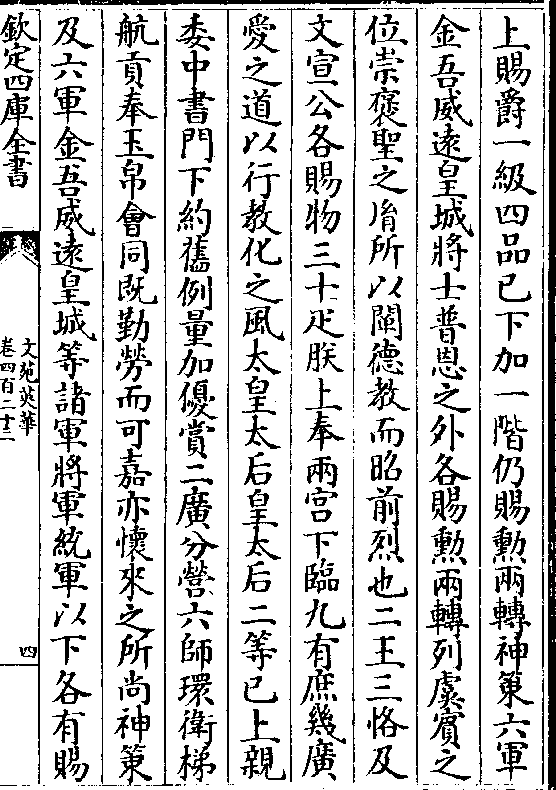 上賜爵一級四品已下加一階仍賜勲兩轉神策六軍
金吾威逺皇城將士普恩之外各賜勲兩轉列虞賓之
位崇褒聖之胤所以闡德教而昭前烈也二王三恪及
文宣公各賜物三十疋朕上奉兩宫下臨九有庶幾廣
愛之道以行教化之風太皇太后皇太后二等已上親
委中書門下約舊例量加優賞二廣分營六師環衛梯
航貢奉玉帛會同既勤勞而可嘉亦懷來之所尚神策
及六軍金吾威逺皇城等諸軍將軍統軍以下各有賜
欽定四庫全書
文苑英華
卷四百二十三
四